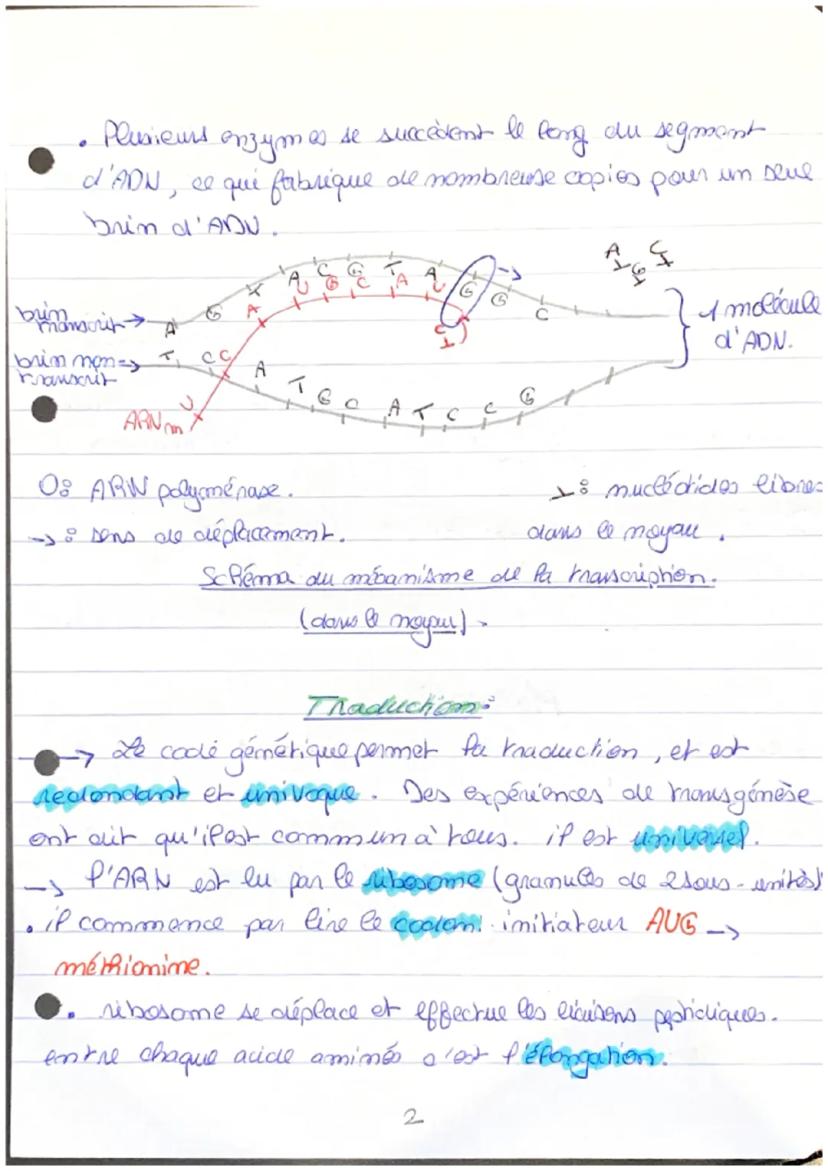 . Plusieurs enzymes se succèdent le long du segment
d'ADN, ce qui fabrique de nombreuse copies pour un seul
brin d'ADN.
A G T A C G T A G G C
A U G C A U
C
A G C
brin transcrit →
brin non → transcrit
T C C A T G C A T C C G
U C
ARNm
1 molécule
d'ADN.
O: ARN polymérase.
⊥: nucléotides libres
→: sens de déplacement.
dans le noyau.
Schéma du mécanisme de la transcription.
(dans le noyau).
Traduction:
→ Le code génétique permet la traduction, et est
redondant et univoque. Des expériences de transgénèse
ont dit qu'il est commun à tous. il est universel.
→ l'ARN est lu par le ribosome (granules de 2 sous-unités)
. il commence par lire le codon initiateur AUG →
méthionine.
. ribosome se déplace et effectue les liaisons peptidiques.
entre chaque acide aminés c'est l'élongation.
2